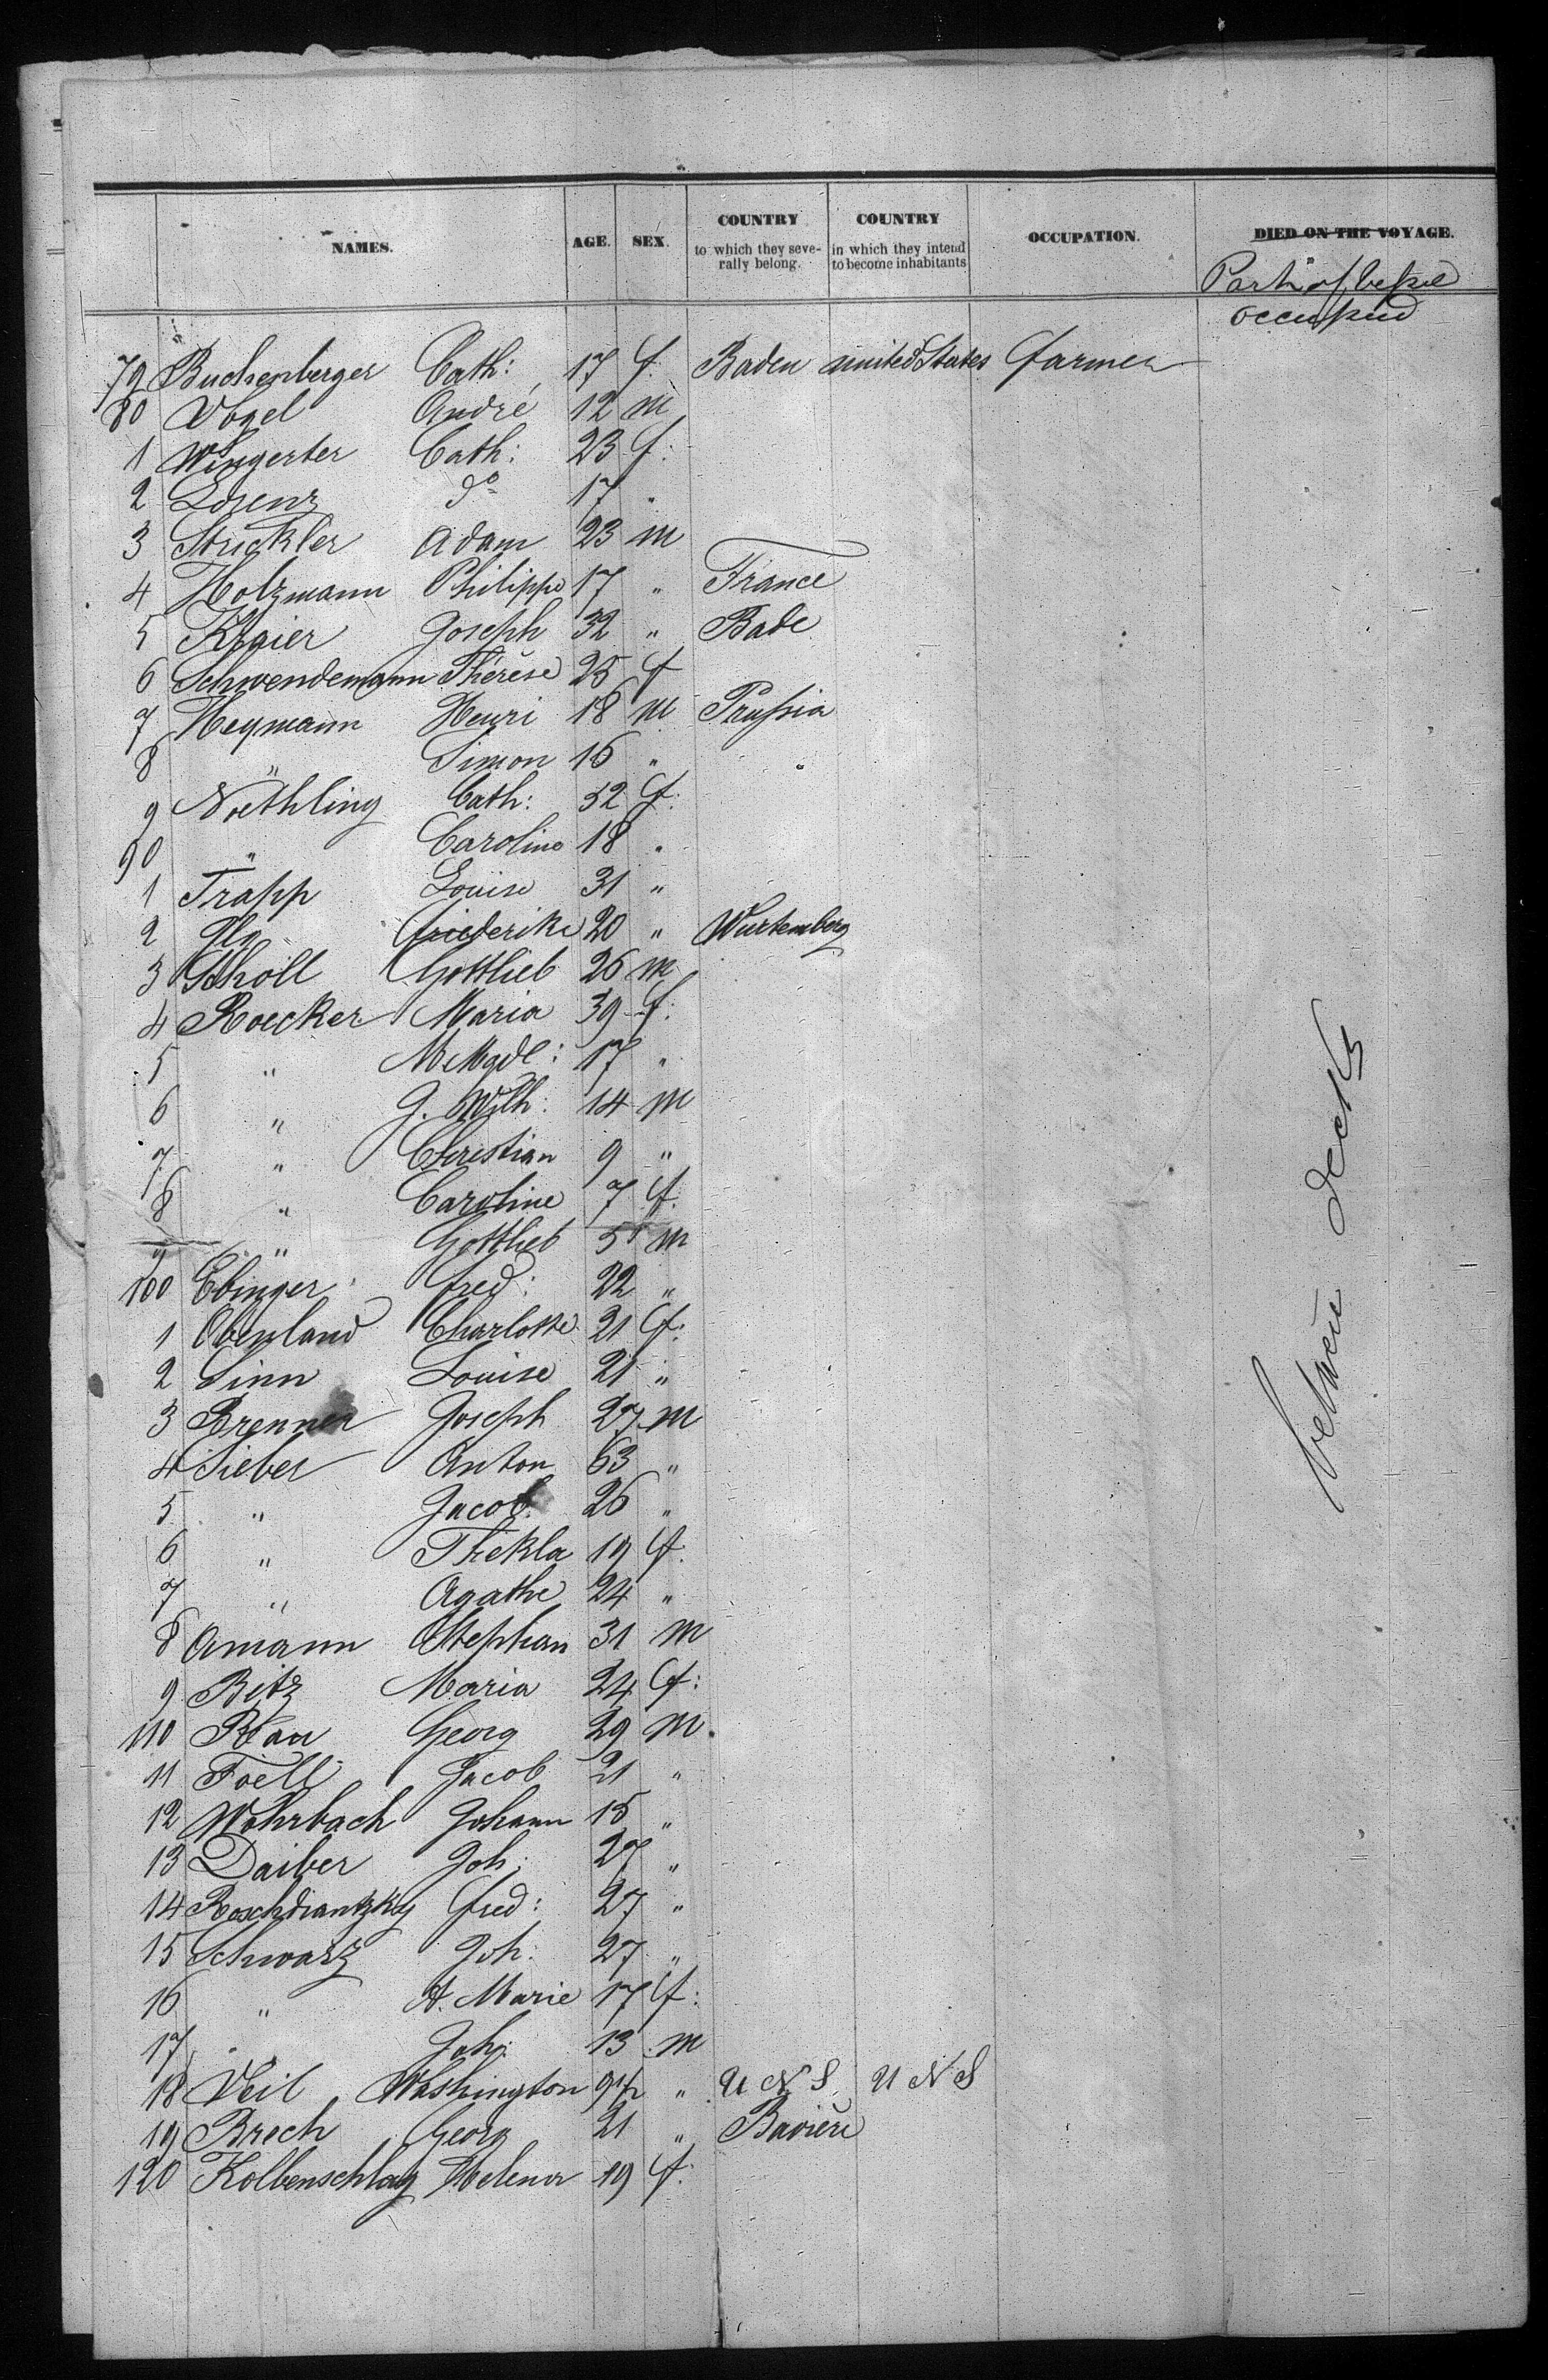 NAMES. AGE. SEX. COUNTRY to which they severally belong. COUNTRY in which they intend to become inhabitants OCCUPATION. DIED ON THE VOYAGE.
Part of vessel
occupied
79 Buchenberger Cath: 17 f. Baden united States farmer
80 Vogel André 12 m
1 Wingerter Cath: 23 f:
2 Lorenz do 17 "
3 Strickler Adam 23 m
4 Holzmann Philippe 17 " France
5 Joseph 32 " Bade
6 Schwendemann Thérèse 25 f
7 Heymann Henri 18 m Prussia
8 " Simon 16 "
9 Noethling Cath: 32 f:
90 " Caroline 18 "
1 Trapp Louise 31 "
2 Friederike 20 " Wurtemberg
3 Scholl Gottlieb 26 m
4 Roecker Maria 39 f:
5 " 17 "
6 " J. Wilh: 14 m
7 " Christian 9 "
8 " Caroline 7 f.
9 " Gottlieb 5 m
100 Ebinger Fred: 22 "
1 Charlotte 21 f:
2 Sinn Louise 21 "
3 Brenner Joseph 27 m
4 Sieber Anton 63 "
5 " Jacob 26 "
6 " Thekla 19 f.
7 " Agathe 24 "
8 Amann Stephan 31 m
9 Betz Maria 24 f:
110 Rau Georg 29 m.
11 Foell Jacob 21 "
12 Wohrbach Johann 15 "
13 Daiber Joh: 27 "
14 Fred: 27 "
15 Schwarz Joh: 27 "
16 " A. Marie 17 f:
17 " Joh: 13 m
18 Veil Washington 9 1/2 " U N S U N S
19 Brech Georg 21 " Bavière
120 Kolbenschlag Helena 19 f.
between decks